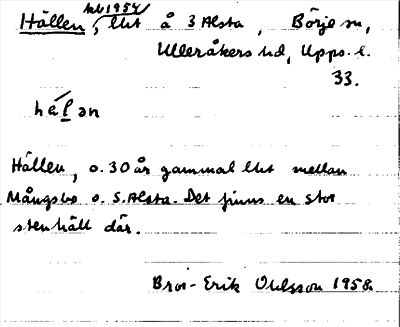 kb 1954
Hällen, lht å 3 Alsta, Börje sn,
Ulleråkers hd, Upps. l.
33.
hälən
Hällen, o. 30 år gammal lht mellan
Mångsbo o. S. Alsta. Det finns en stor
stenhäll där.
Bror-Erik Ohlsson 1958.